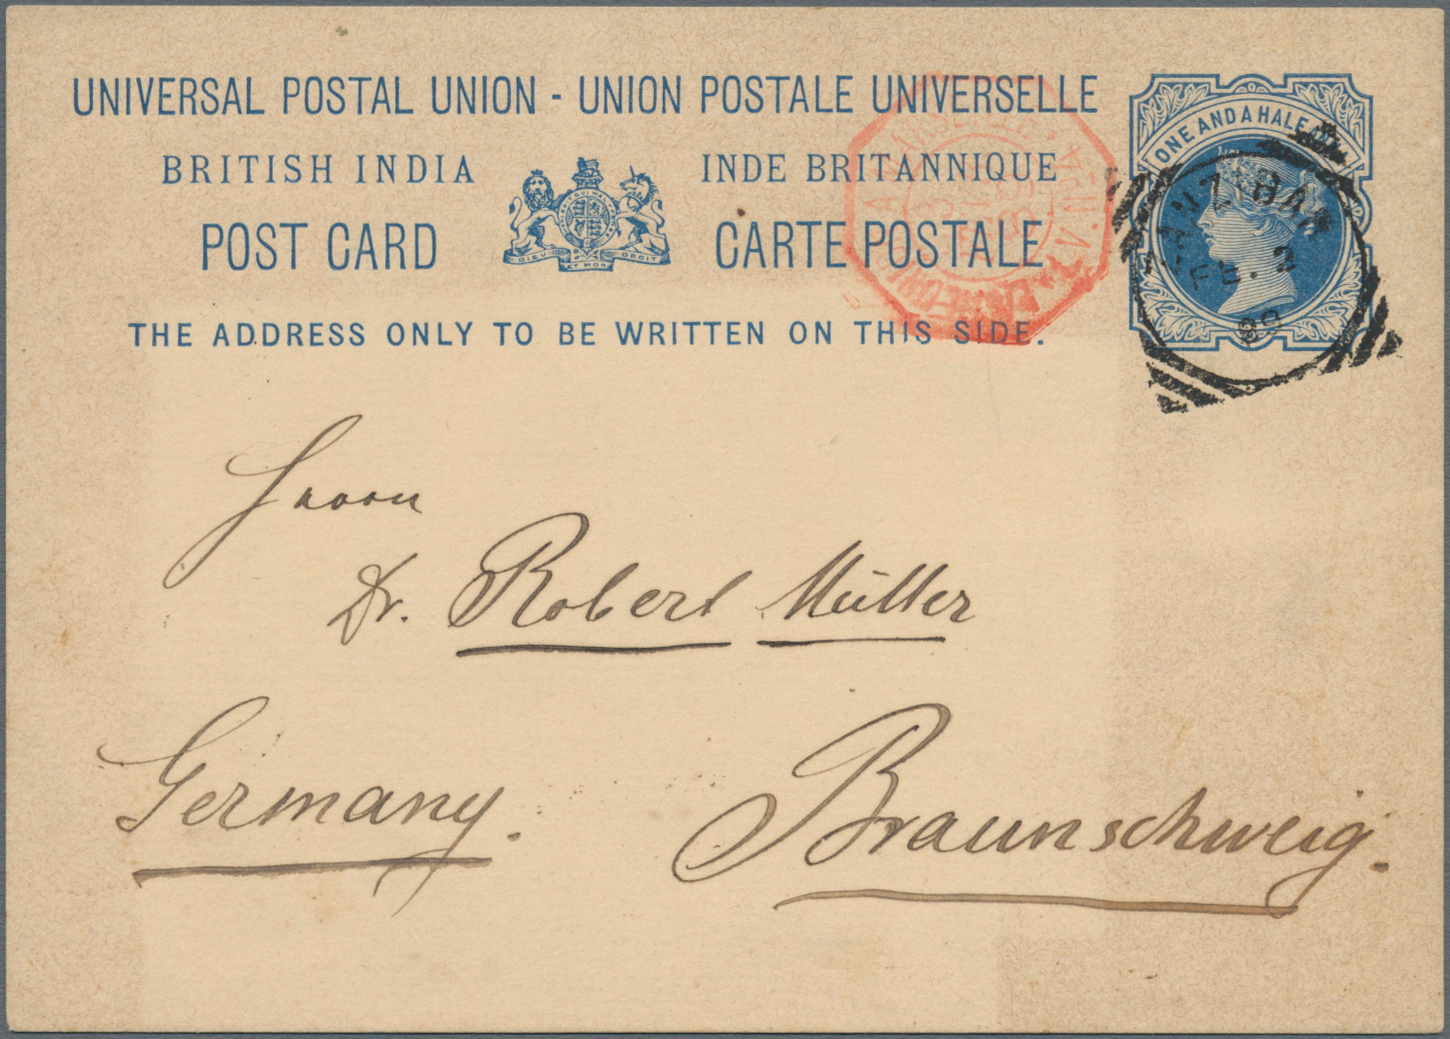 UNIVERSAL POSTAL UNION - UNION POSTALE UNIVERSELLE
BRITISH INDIA INDE BRITANNIQUE
POST CARD CARTE POSTALE
DIEU ET MON DROIT
THE ADDRESS ONLY TO BE WRITTEN ON THIS SIDE.
ONE AND A HALF
ZANZIBAR
FE. 2
89
Herrn
Dr. Robert Müller
Germany.
Braunschweig.